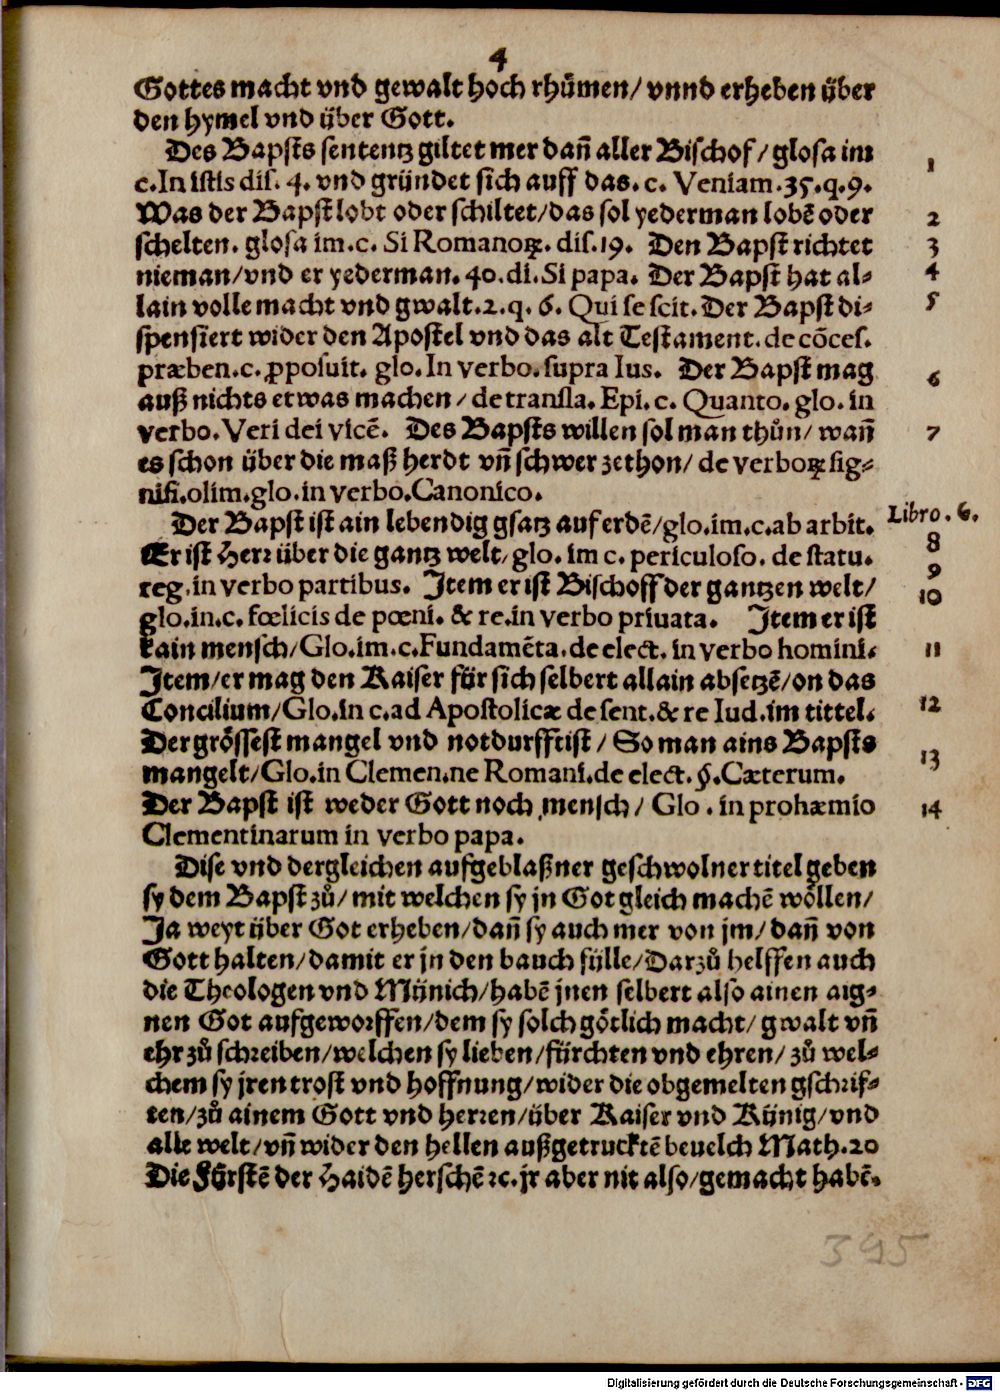 4
Gottes macht vnd gewalt hoch rhuͤmen/ vnnd erheben über
den hymel vnd über Gott.
Des Bapsts sententz giltet mer dañ aller Bischof/ glosa im 1
c.In istis dis. 4. vnd gründet sich auff das. c. Veniam.35.q.9.
Was der Bapst lobt oder schiltet/das sol yederman lobẽ oder 2
schelten. glosa im.c. Si Romanoꝝ. dis.19. Den Bapst richtet 3
nieman/vnd er yederman. 40.di.Si papa. Der Bapst hat al⸗ 4
lain volle macht vnd gwalt.2.q. 6. Qui se scit. Der Bapst di⸗ 5
spensiert wider den Apostel vnd das alt Testament. de cõces.
præben.c. ꝓposuit. glo. In verbo. supra Ius. Der Bapst mag 6
auß nichts etwas machen/ de transla. Epi. c. Quanto. glo. in
verbo. Veri dei vicẽ. Des Bapsts willen sol man thůn/ wañ 7
es schon über die maß herdt vñ schwer zethon/ de verboꝝ sig⸗
nifi.olim.glo.in verbo.Canonico.
Der Bapst ist ain lebendig gsatz auf erdẽ/glo.im.c.ab arbit. Libro. 6.
Er ist Herr über die gantz welt/ glo. im c. periculoso. de statu. 8
reg.in verbo partibus. Item er ist Bischoff der gantzen welt/ 9
glo.in.c. fœlicis de pœni. & re.in verbo priuata. Item er ist 10
kain mensch/Glo.im.c.Fundamẽta.de elect. in verbo homini. 11
Item/er mag den Kaiser für sich selbert allain absetzẽ/on das
Concilium/Glo.in c.ad Apostolicæ de sent.& re Iud.im tittel. 12
Der groͤssest mangel vnd notdurfftist/ So man ains Bapsts
mangelt/Glo.in Clemen.ne Romani.de elect. §.Cæterum. 13
Der Bapst ist weder Gott noch mensch/ Glo. in prohæmio 14
Clementinarum in verbo papa.
Dise vnd dergleichen aufgeblaßner geschwolner titel geben
sy dem Bapst zů/ mit welchen sy jn Got gleich machẽ woͤllen/
Ja weyt über Got erheben/dañ sy auch mer von jm/ dañ von
Gott halten/damit er jn den bauch fülle/Darzů helffen auch
die Theologen vnd Münich/habẽ jnen selbert also ainen aig⸗
nen Got aufgeworffen/dem sy solch goͤtlich macht/ gwalt vñ
ehr zů schreiben/welchen sy lieben/fürchten vnd ehren/ zů wel⸗
chem sy jren trost vnd hoffnung/wider die obgemelten gschrif⸗
ten/zů ainem Gott vnd herren/über Kaiser vnd Künig/vnd
alle welt/vñ wider den hellen außgetrucktẽ beuelch Math.20
Die Fürstẽ der Haidẽ herschẽ ꝛc. jr aber nit also/gemacht habẽ.
395
Digitalisierung gefördert durch die Deutsche Forschungsgemeinschaft - DFG